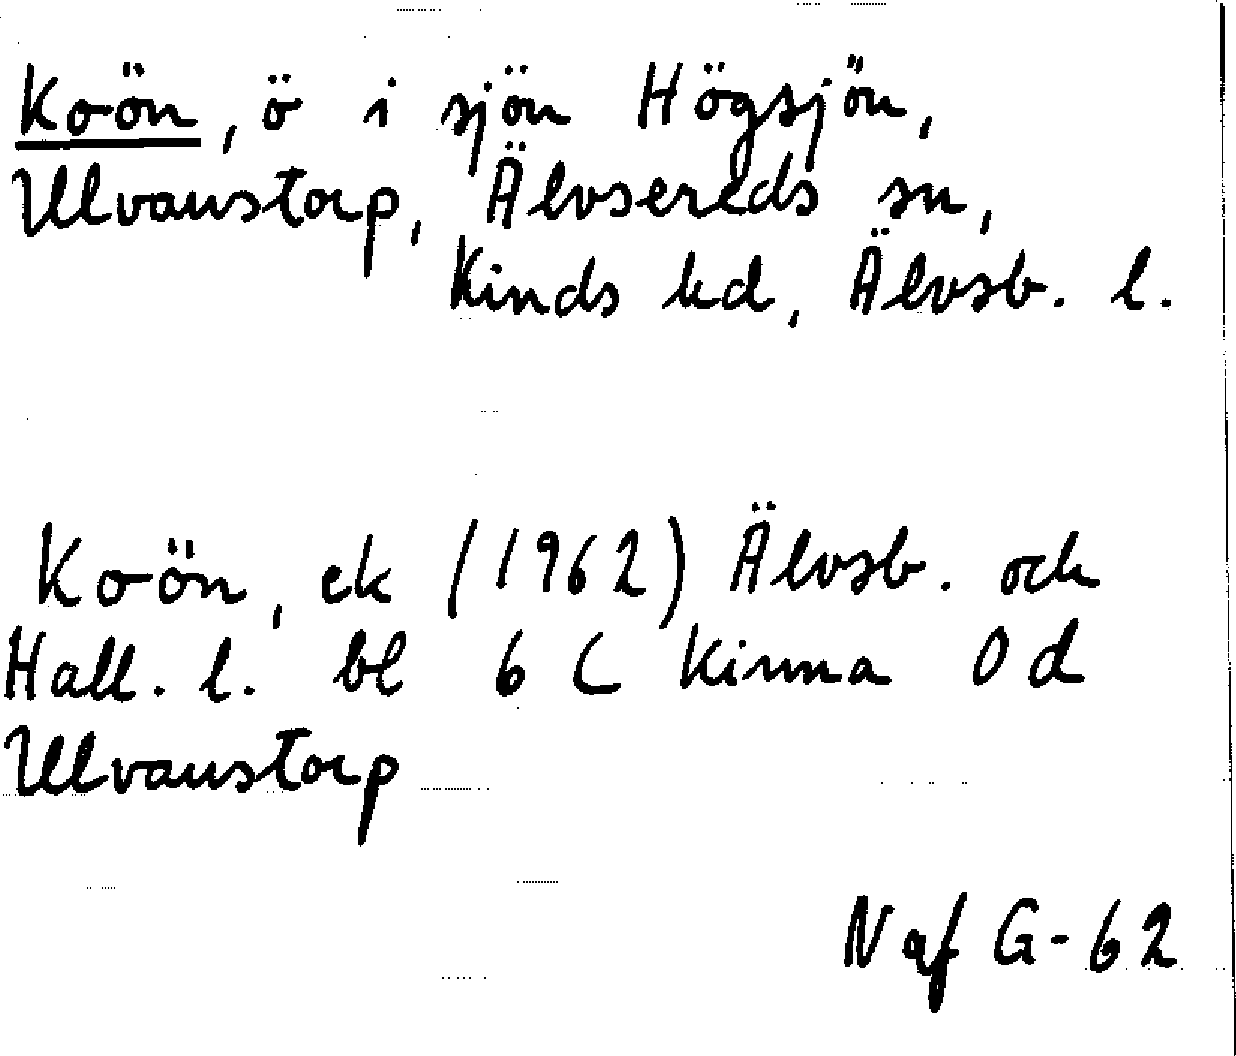 Koön, ö i sjön Högsjön,
Ulvanstorp, Älvsereds sn,
Kinds hd, Älvsb. l.
Koön, ek (1962) Älvsb. och
Hall. l. bl 6 C Kinna 0 d
Ulvanstorp
Naf G-62